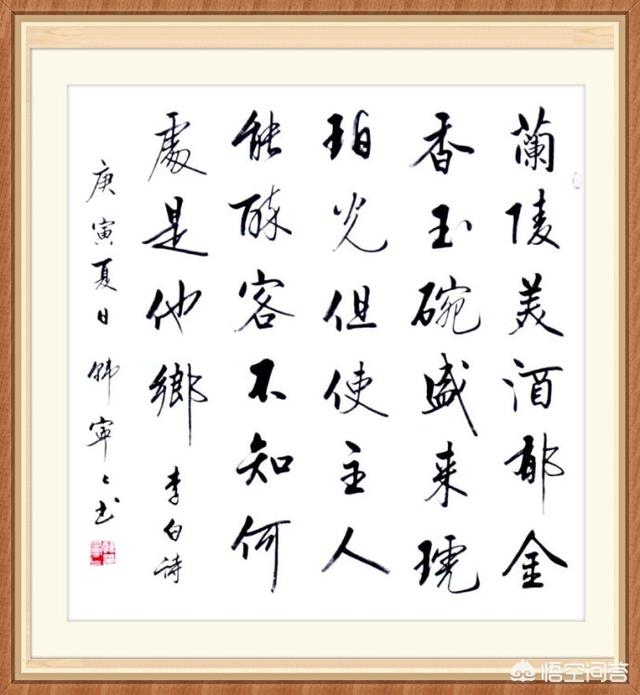 蘭陵美酒郁金
香玉碗盛来琥
珀光但使主人
能醉客不知何
處是他鄉 李白詩
庚寅夏日韩寧々书
悟空问答